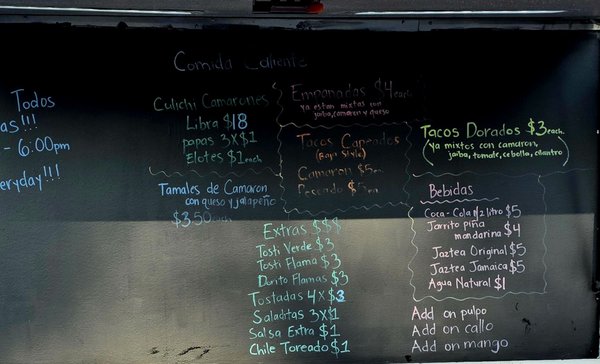 Comida Caliente
Todos
as!!!
- 6:00pm
eryday!!!
Culichi Camarones
Libra $18
papas 3x$1
Elotes $1 each
Tamales de Camaron
con queso y jalapeño
$3.50 each
Empanadas $4 each
ya estan mixtas con
jaiba, camaron y queso
Tacos Capeados
(Baja Style)
Camaron $5 ea
Pescado $5 ea
Tacos Dorados $3 each.
(ya mixtos con camaron,
jaiba, tomate, cebolla, cilantro)
Bebidas
Coca-Cola 1/2 litro $5
Jarrito piña
mandarina $4
Jaztea Original $5
Jaztea Jamaica $5
Agua Natural $1
Extras $$$
Tosti Verde $3
Tosti Flama $3
Dorito Flamas $3
Tostadas 4x$3
Saladitas 3x$1
Salsa Extra $1
Chile Toreado $1
Add on pulpo
Add on callo
Add on mango